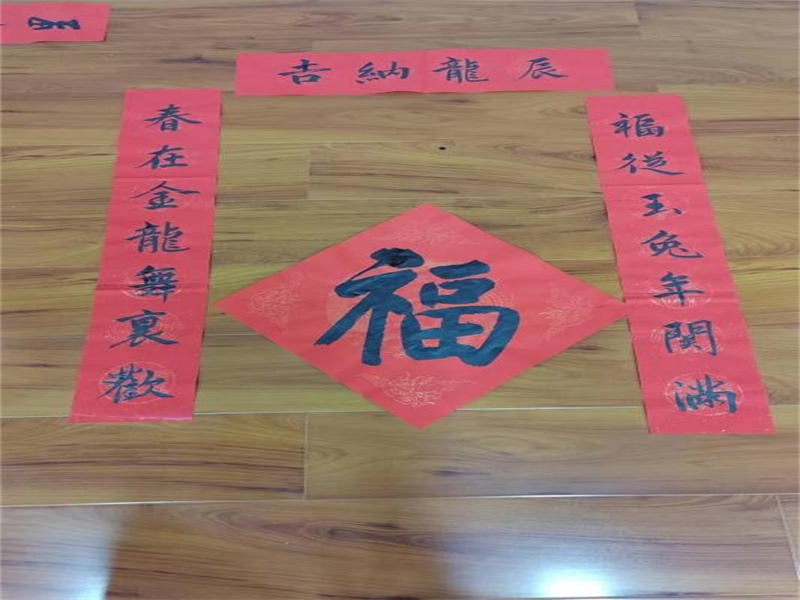 辰龍納吉
福從玉兔年関滿
春在金龍舞裏歡
福